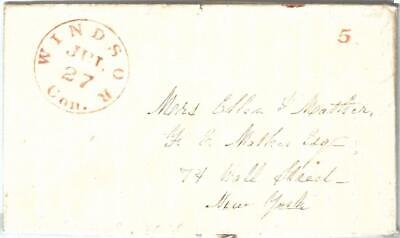 WINDSOR
JUL
27
Con.
5
Ellen Mather,
Esq
74 Wall Street
New York